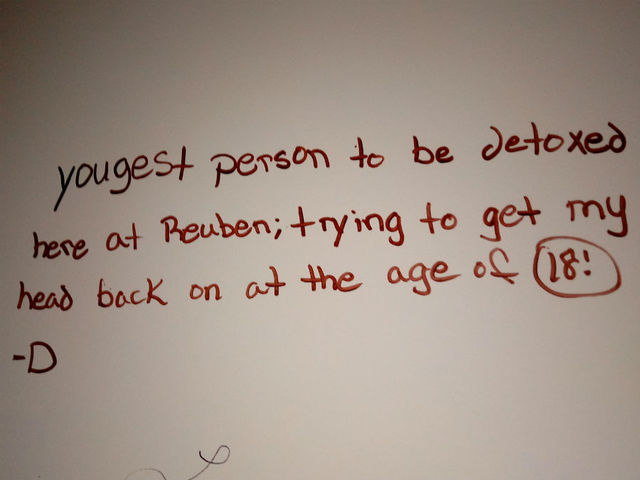 yougest person to be detoxed
here at Reuben; trying to get my
head back on at the age of 18!
-D